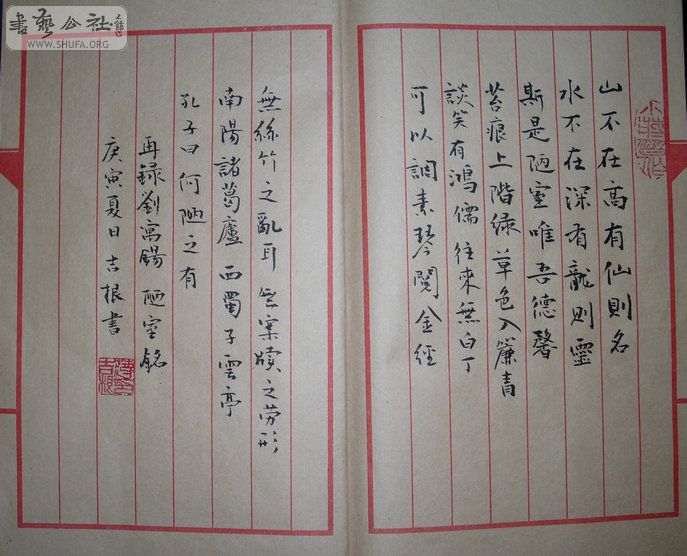 書藝公社
WWW.SHUFA.ORG
山不在高有仙則名
水不在深有龍則靈
斯是陋室唯吾德馨
苔痕上階緑草色入簾青
談笑有鴻儒往來無白丁
可以調素琴閱金經
無絲竹之亂耳无案牘之勞形
南陽諸葛廬西蜀子雲亭
孔子曰何陋之有
再録劉寓錫陋室銘
庚寅夏日吉根書